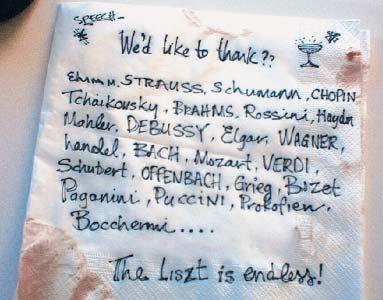 SPEECH-
We'd like to thank??
Ehmm, STRAUSS, Schumann, CHOPIN
Tchaikovsky, BRAHMS, Rossini, Haydn
Mahler, DEBUSSY, Elgar, WAGNER,
handel, BACH, Mozart, VERDI,
Schubert, OFFENBACH, Grieg, Bizet
Paganini, PUCCINI, Prokofiev,
Boccherini....
The Liszt is endless!